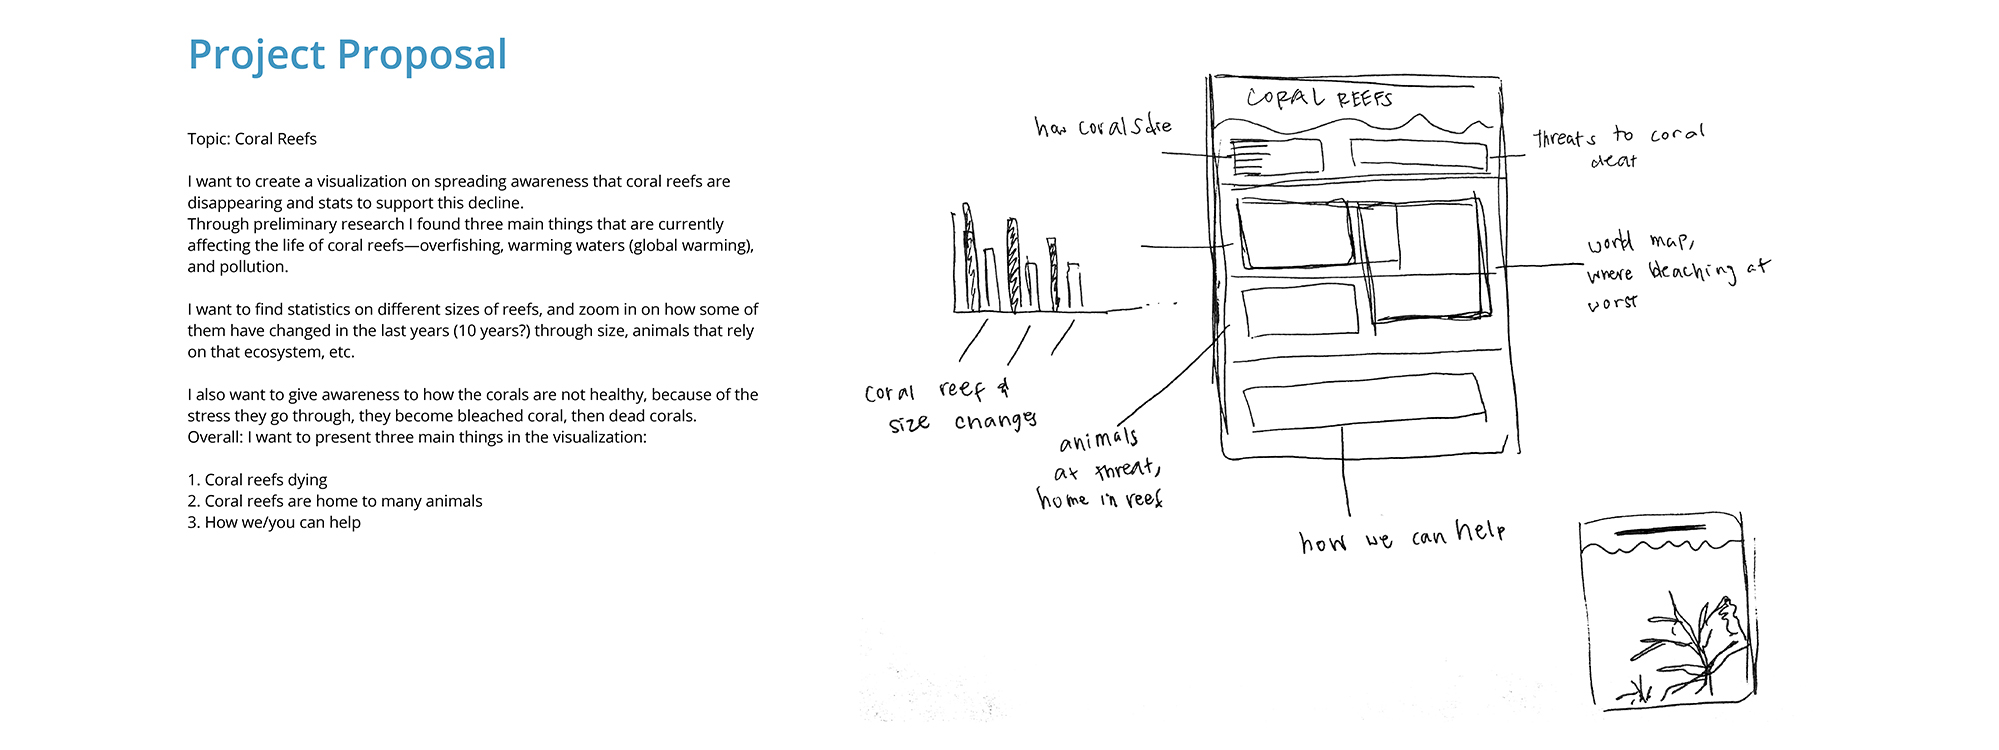 Project Proposal
Topic: Coral Reefs
I want to create a visualization on spreading awareness that coral reefs are
disappearing and stats to support this decline.
Through preliminary research I found three main things that are currently
affecting the life of coral reefs—overfishing, warming waters (global warming),
and pollution.
I want to find statistics on different sizes of reefs, and zoom in on how some of
them have changed in the last years (10 years?) through size, animals that rely
on that ecosystem, etc.
I also want to give awareness to how the corals are not healthy, because of the
stress they go through, they become bleached coral, then dead corals.
Overall: I want to present three main things in the visualization:
1. Coral reefs dying
2. Coral reefs are home to many animals
3. How we/you can help
CORAL REEFS
how corals die
threats to coral
world map,
where bleaching at
worst
coral reef &
size changes
animals
at threat,
home in reef
how we can help